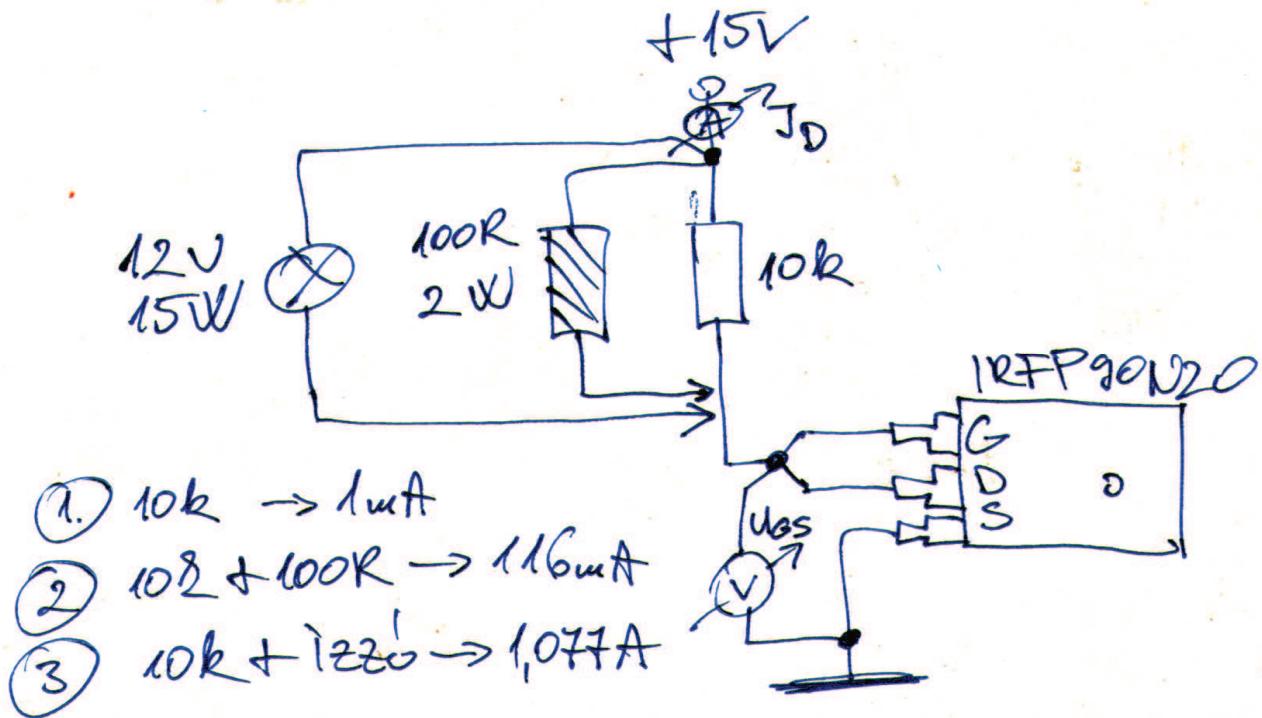 +15V
A
JD
12V
15W
100R
2W
10k
IRFP90N20
G
D
S
UGS
V
1. 10k → 1mA
2 10k + 100R → 116mA
3 10k + izzó → 1,077A